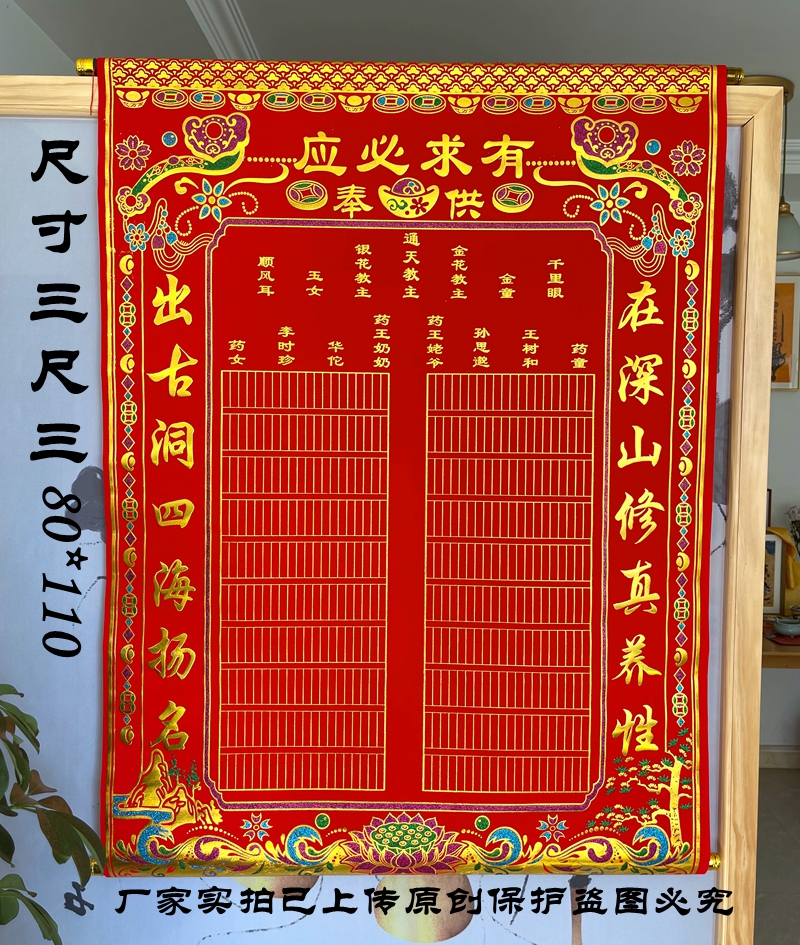 有求必应
供奉
在深山修真养性
出古洞四海扬名
通天教主
金花教主
银花教主
金童
玉女
千里眼
顺风耳
药王姥爷
药王奶奶
孙思邈
华佗
王树和
李时珍
药童
药女
尺寸三尺三80*110
厂家实拍已上传原创保护盗图必究